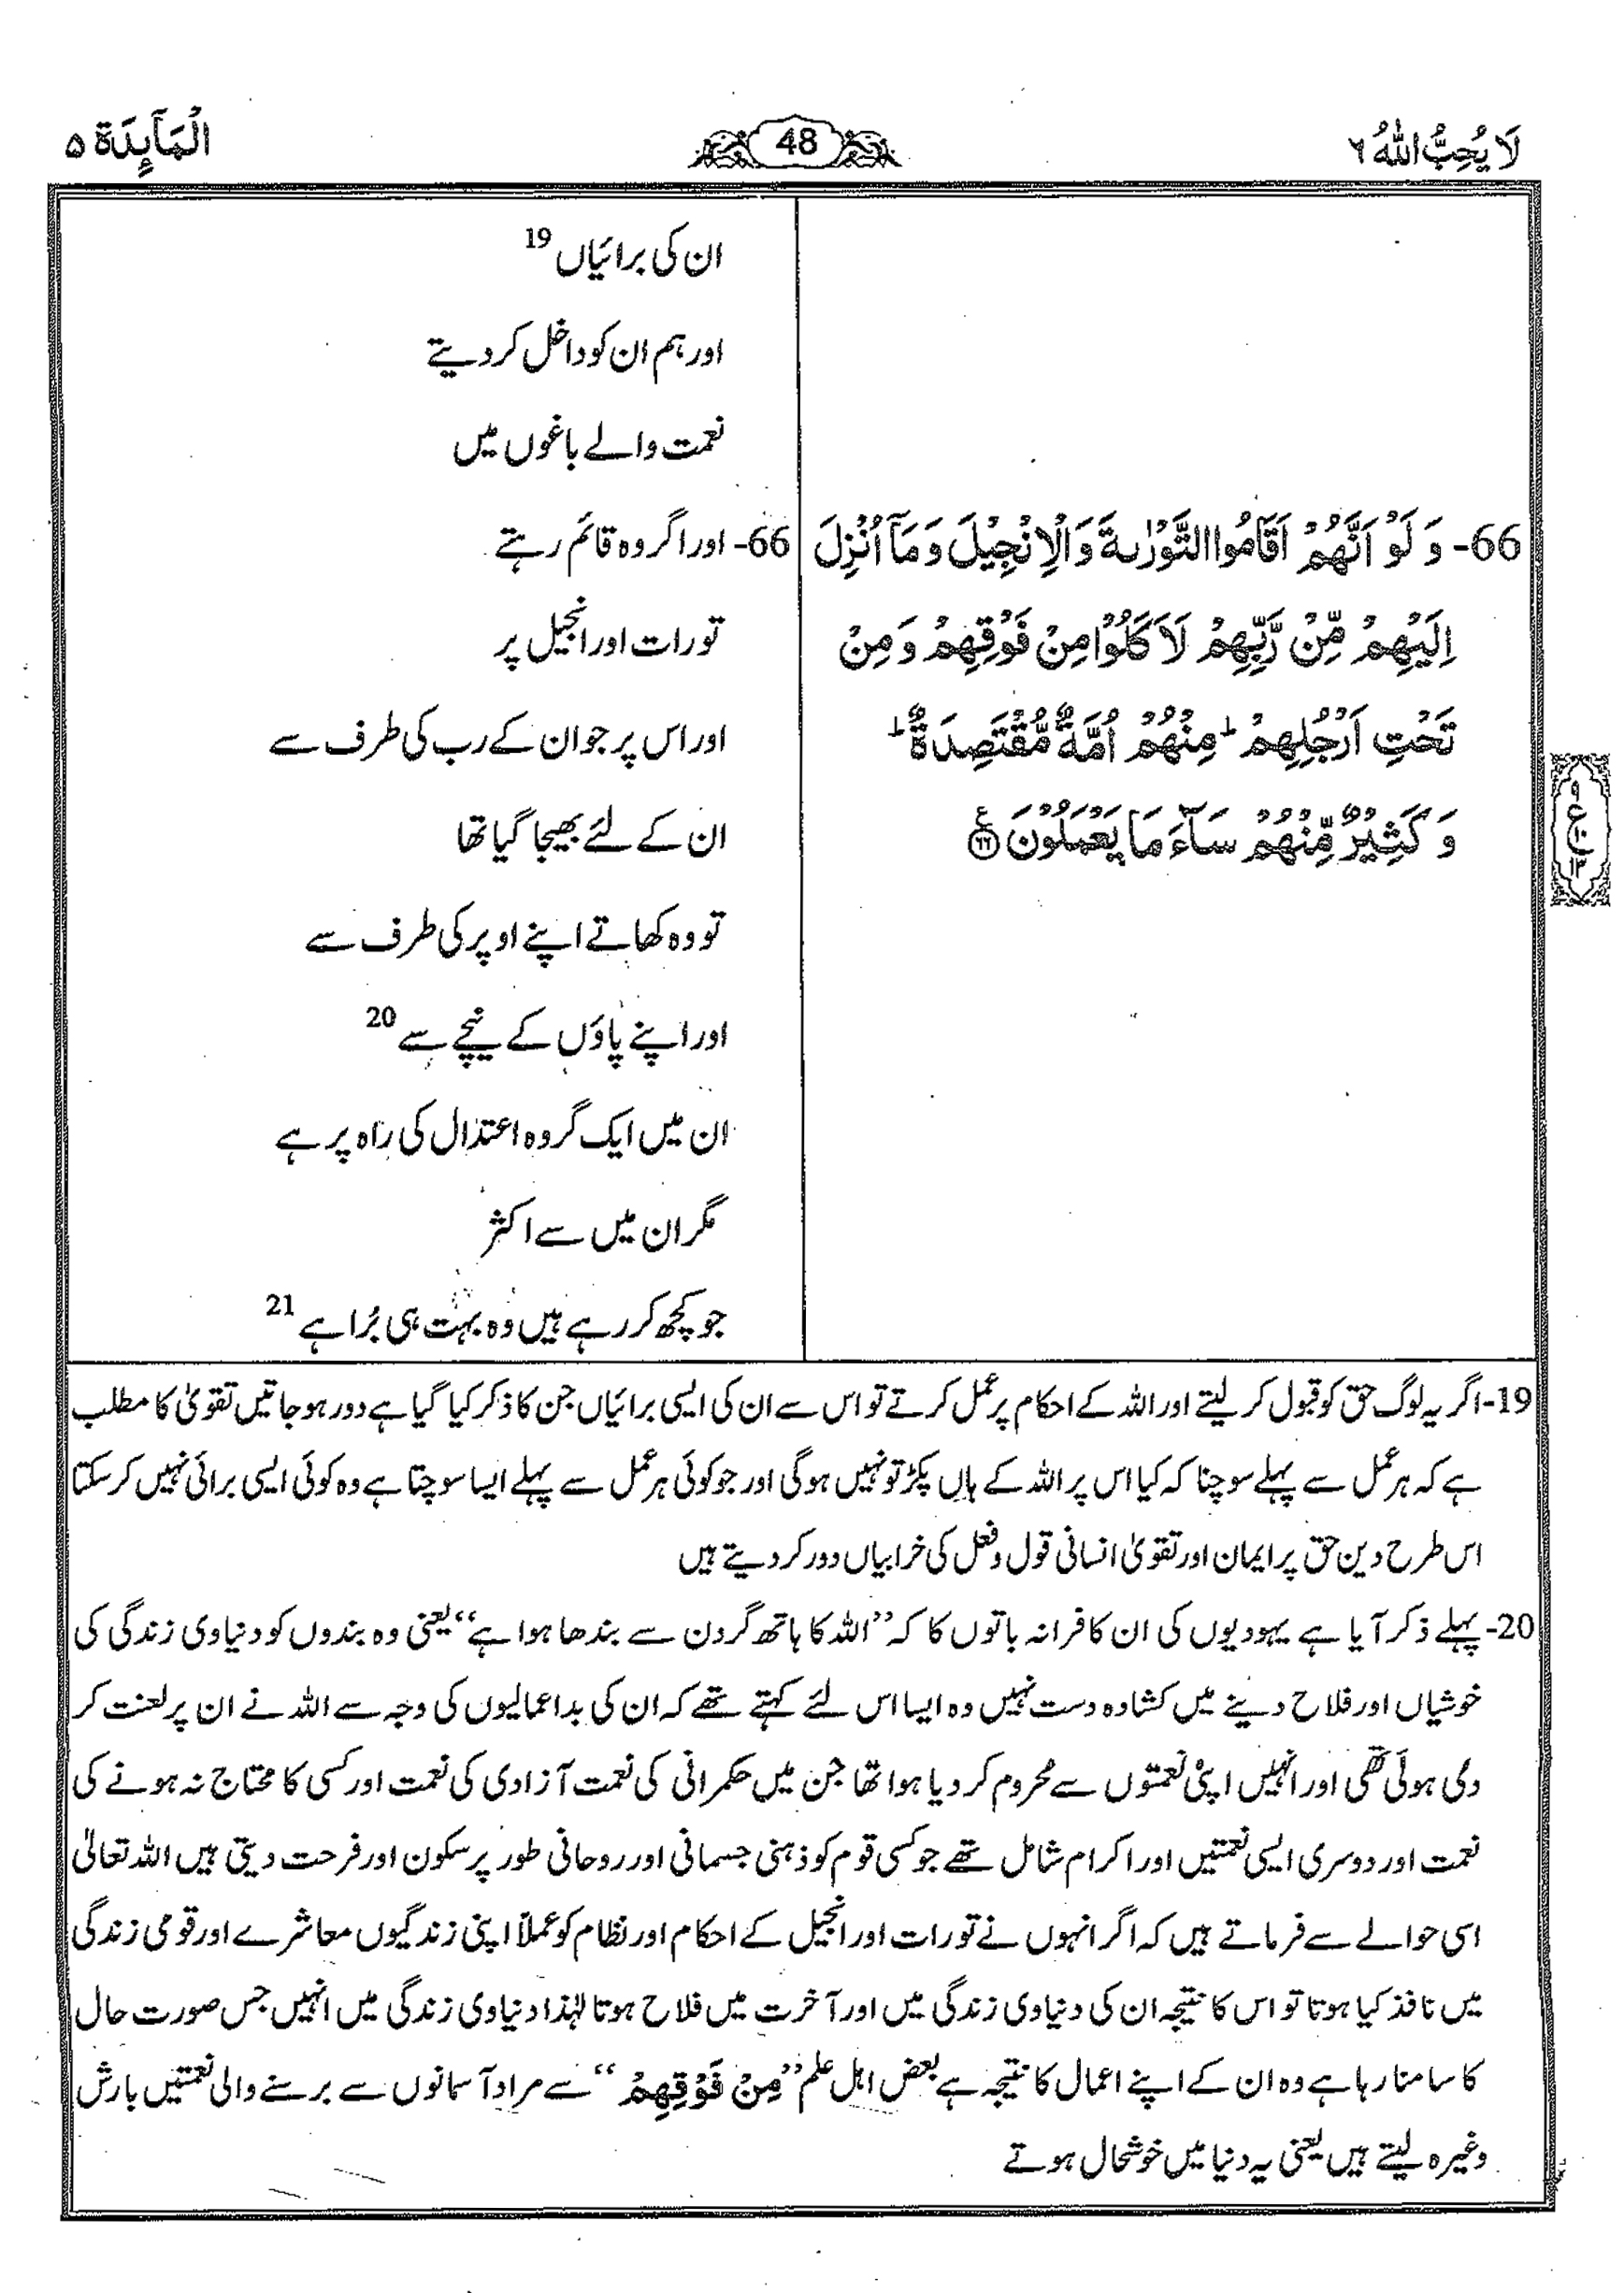 لَا يُحِبُّ اللّٰهُ ٦
48
الْمَآئِدَة ٥
66- وَ لَوْ اَنَّهُمْ اَقَامُوا التَّوْرٰىةَ وَالْاِنْجِيْلَ وَ مَآ اُنْزِلَ
اِلَيْهِمْ مِّنْ رَّبِّهِمْ لَاَكَلُوْا مِنْ فَوْقِهِمْ وَ مِنْ
تَحْتِ اَرْجُلِهِمْ ؕ مِنْهُمْ اُمَّةٌ مُّقْتَصِدَةٌ ؕ
وَ كَثِيْرٌ مِّنْهُمْ سَآءَ مَا يَعْمَلُوْنَ ﴿٦٦﴾
ع
ان کی برائیاں 19
اور ہم ان کو داخل کر دیتے
نعمت والے باغوں میں
66- اور اگر وہ قائم رہتے
تورات اور انجیل پر
اور اس پر جو ان کے رب کی طرف سے
ان کے لئے بھیجا گیا تھا
تو وہ کھاتے اپنے اوپر کی طرف سے
اور اپنے پاؤں کے نیچے سے 20
ان میں ایک گروہ اعتدال کی راہ پر ہے
مگر ان میں سے اکثر
جو کچھ کر رہے ہیں وہ بہت ہی بُرا ہے 21
19-اگر یہ لوگ حق کو قبول کر لیتے اور اللہ کے احکام پر عمل کرتے تو اس سے ان کی ایسی برائیاں جن کا ذکر کیا گیا ہے دور ہو جاتیں تقویٰ کا مطلب
ہے کہ ہر عمل سے پہلے سوچنا کہ کیا اس پر اللہ کے ہاں پکڑ تو نہیں ہوگی اور جو کوئی ہر عمل سے پہلے ایسا سوچتا ہے وہ کوئی ایسی برائی نہیں کر سکتا
اس طرح دین حق پر ایمان اور تقویٰ انسانی قول و فعل کی خرابیاں دور کر دیتے ہیں
20-پہلے ذکر آیا ہے یہودیوں کی ان کافرانہ باتوں کا کہ ’’اللہ کا ہاتھ گردن سے بندھا ہوا ہے‘‘ یعنی وہ بندوں کو دنیاوی زندگی کی
خوشیاں اور فلاح دینے میں کشادہ دست نہیں وہ ایسا اس لئے کہتے تھے کہ ان کی بداعمالیوں کی وجہ سے اللہ نے ان پر لعنت کر
دی ہوئی تھی اور انہیں اپنی نعمتوں سے محروم کر دیا ہوا تھا جن میں حکمرانی کی نعمت آزادی کی نعمت اور کسی کا محتاج نہ ہونے کی
نعمت اور دوسری ایسی نعمتیں اور اکرام شامل تھے جو کسی قوم کو ذہنی جسمانی اور روحانی طور پر سکون اور فرحت دیتی ہیں اللہ تعالیٰ
اسی حوالے سے فرماتے ہیں کہ اگر انہوں نے تورات اور انجیل کے احکام اور نظام کو عملاً اپنی زندگیوں معاشرے اور قومی زندگی
میں نافذ کیا ہوتا تو اس کا نتیجہ ان کی دنیاوی زندگی میں اور آخرت میں فلاح ہوتا لہٰذا دنیاوی زندگی میں انہیں جس صورت حال
کا سامنا رہا ہے وہ ان کے اپنے اعمال کا نتیجہ ہے بعض اہل علم ’’مِنْ فَوْقِهِمْ‘‘ سے مراد آسمانوں سے برسنے والی نعمتیں بارش
وغیرہ لیتے ہیں یعنی یہ دنیا میں خوشحال ہوتے